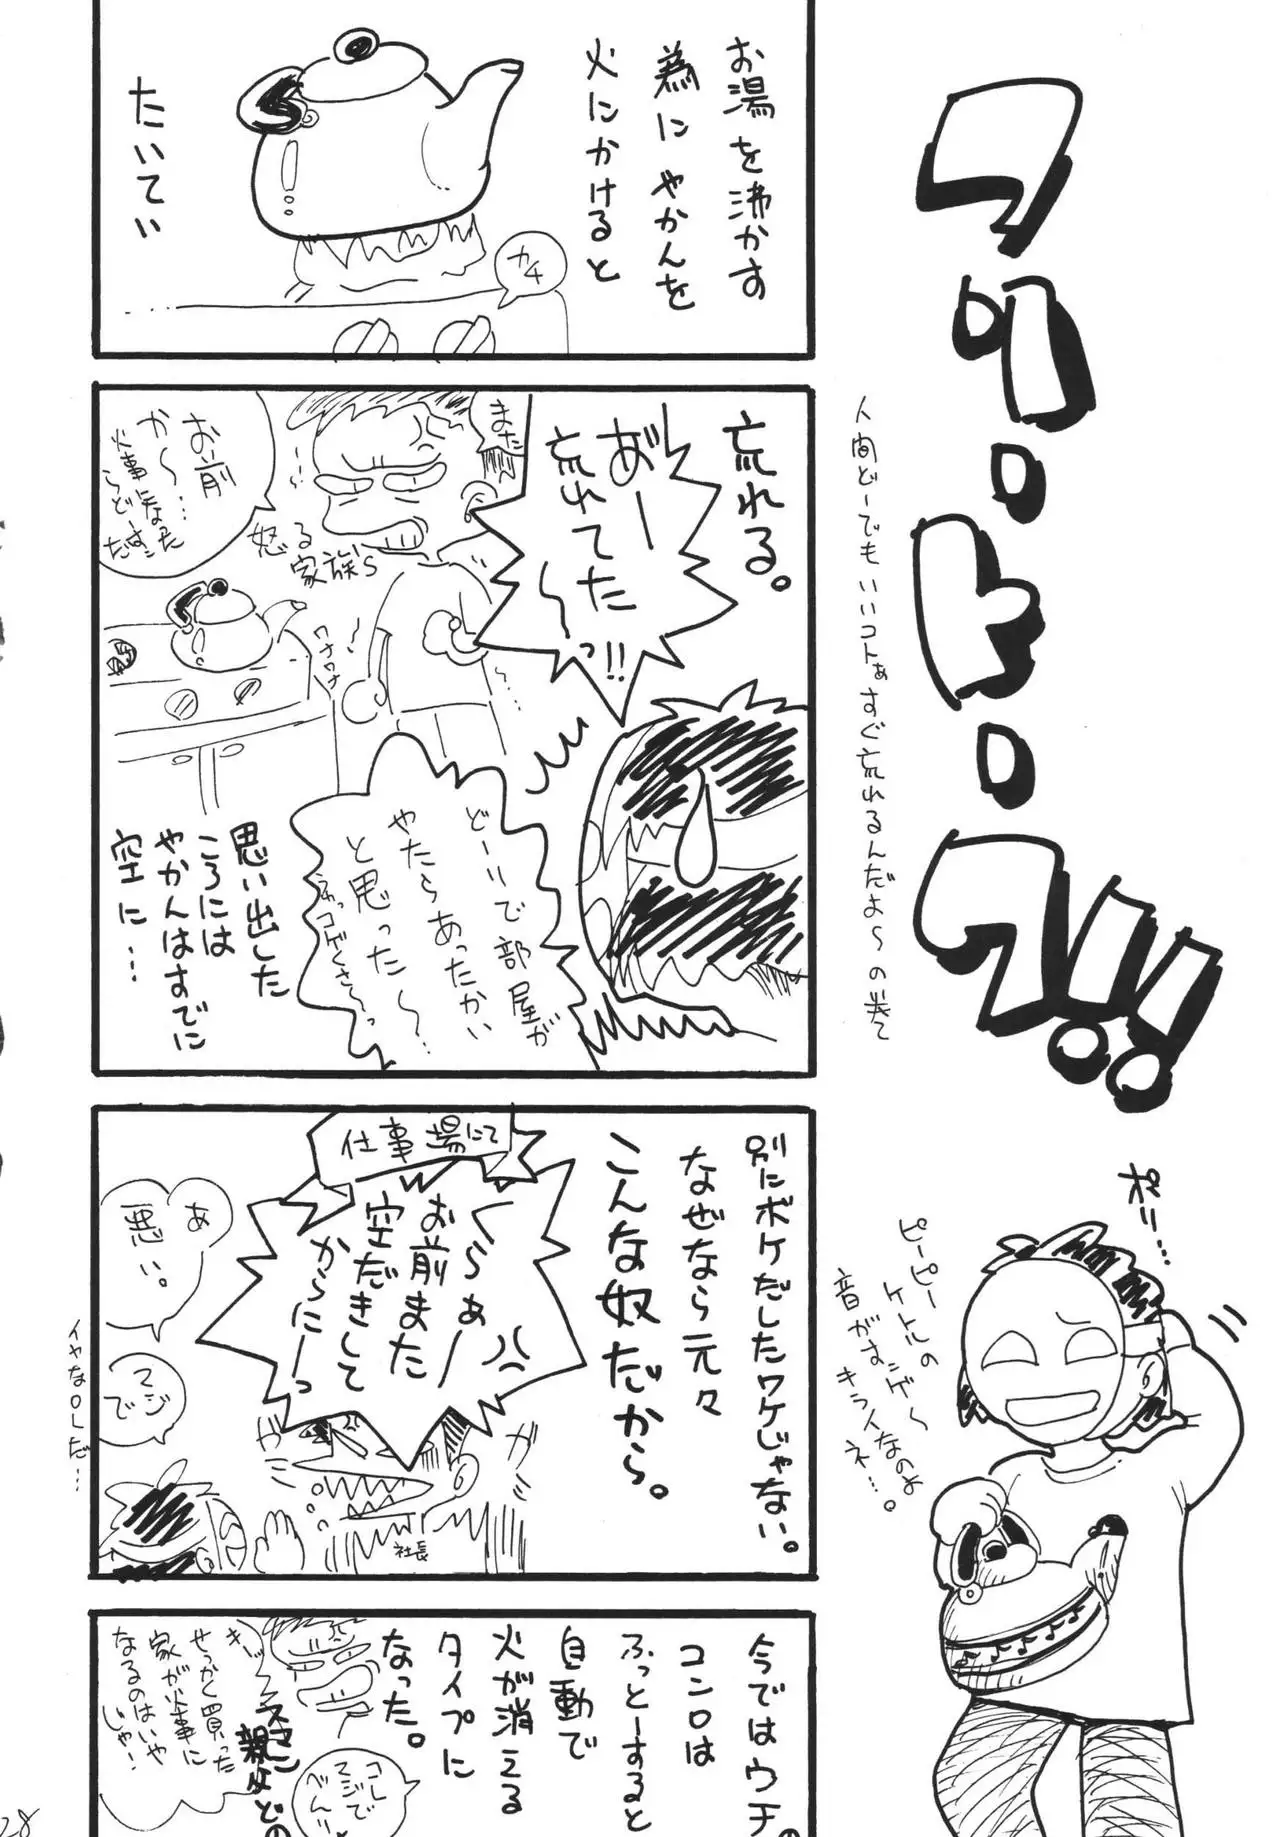 フリートーク!!
人間どーでもいいコトぁすぐ忘れるんだよ〜の巻て
お湯を沸かす
為にやかんを
火にかけると
たいてい
カチ
忘れる。
あ゛ー
忘れてた
〜っ!!
また
お前
か〜…
火事になった
らどーすんだ
怒る
家族's
ワナワナ
どーりで部屋が
やたらあったかい
と思った〜…
思い出した
ころには
やかんはすでに
空に…
別にボケだしたワケじゃない。
なぜなら元々
こんな奴だから。
仕事場にて
らぁー
お前また
空だきして
からにーっ
あ
悪い。
マジ
で
イヤなOLだ…
社長
ガ
ポリ…
ピーピー
ケトルの
音がすンゲ〜
キライなのよ
ネ…。
今ではウチの
コンロは
ふっとーすると
自動で
火が消える
タイプに
なった。
せっかく買った
家が火事に
なるのはいや
じゃ!
スマン
親父どの
コレ
マジで
べんり
28